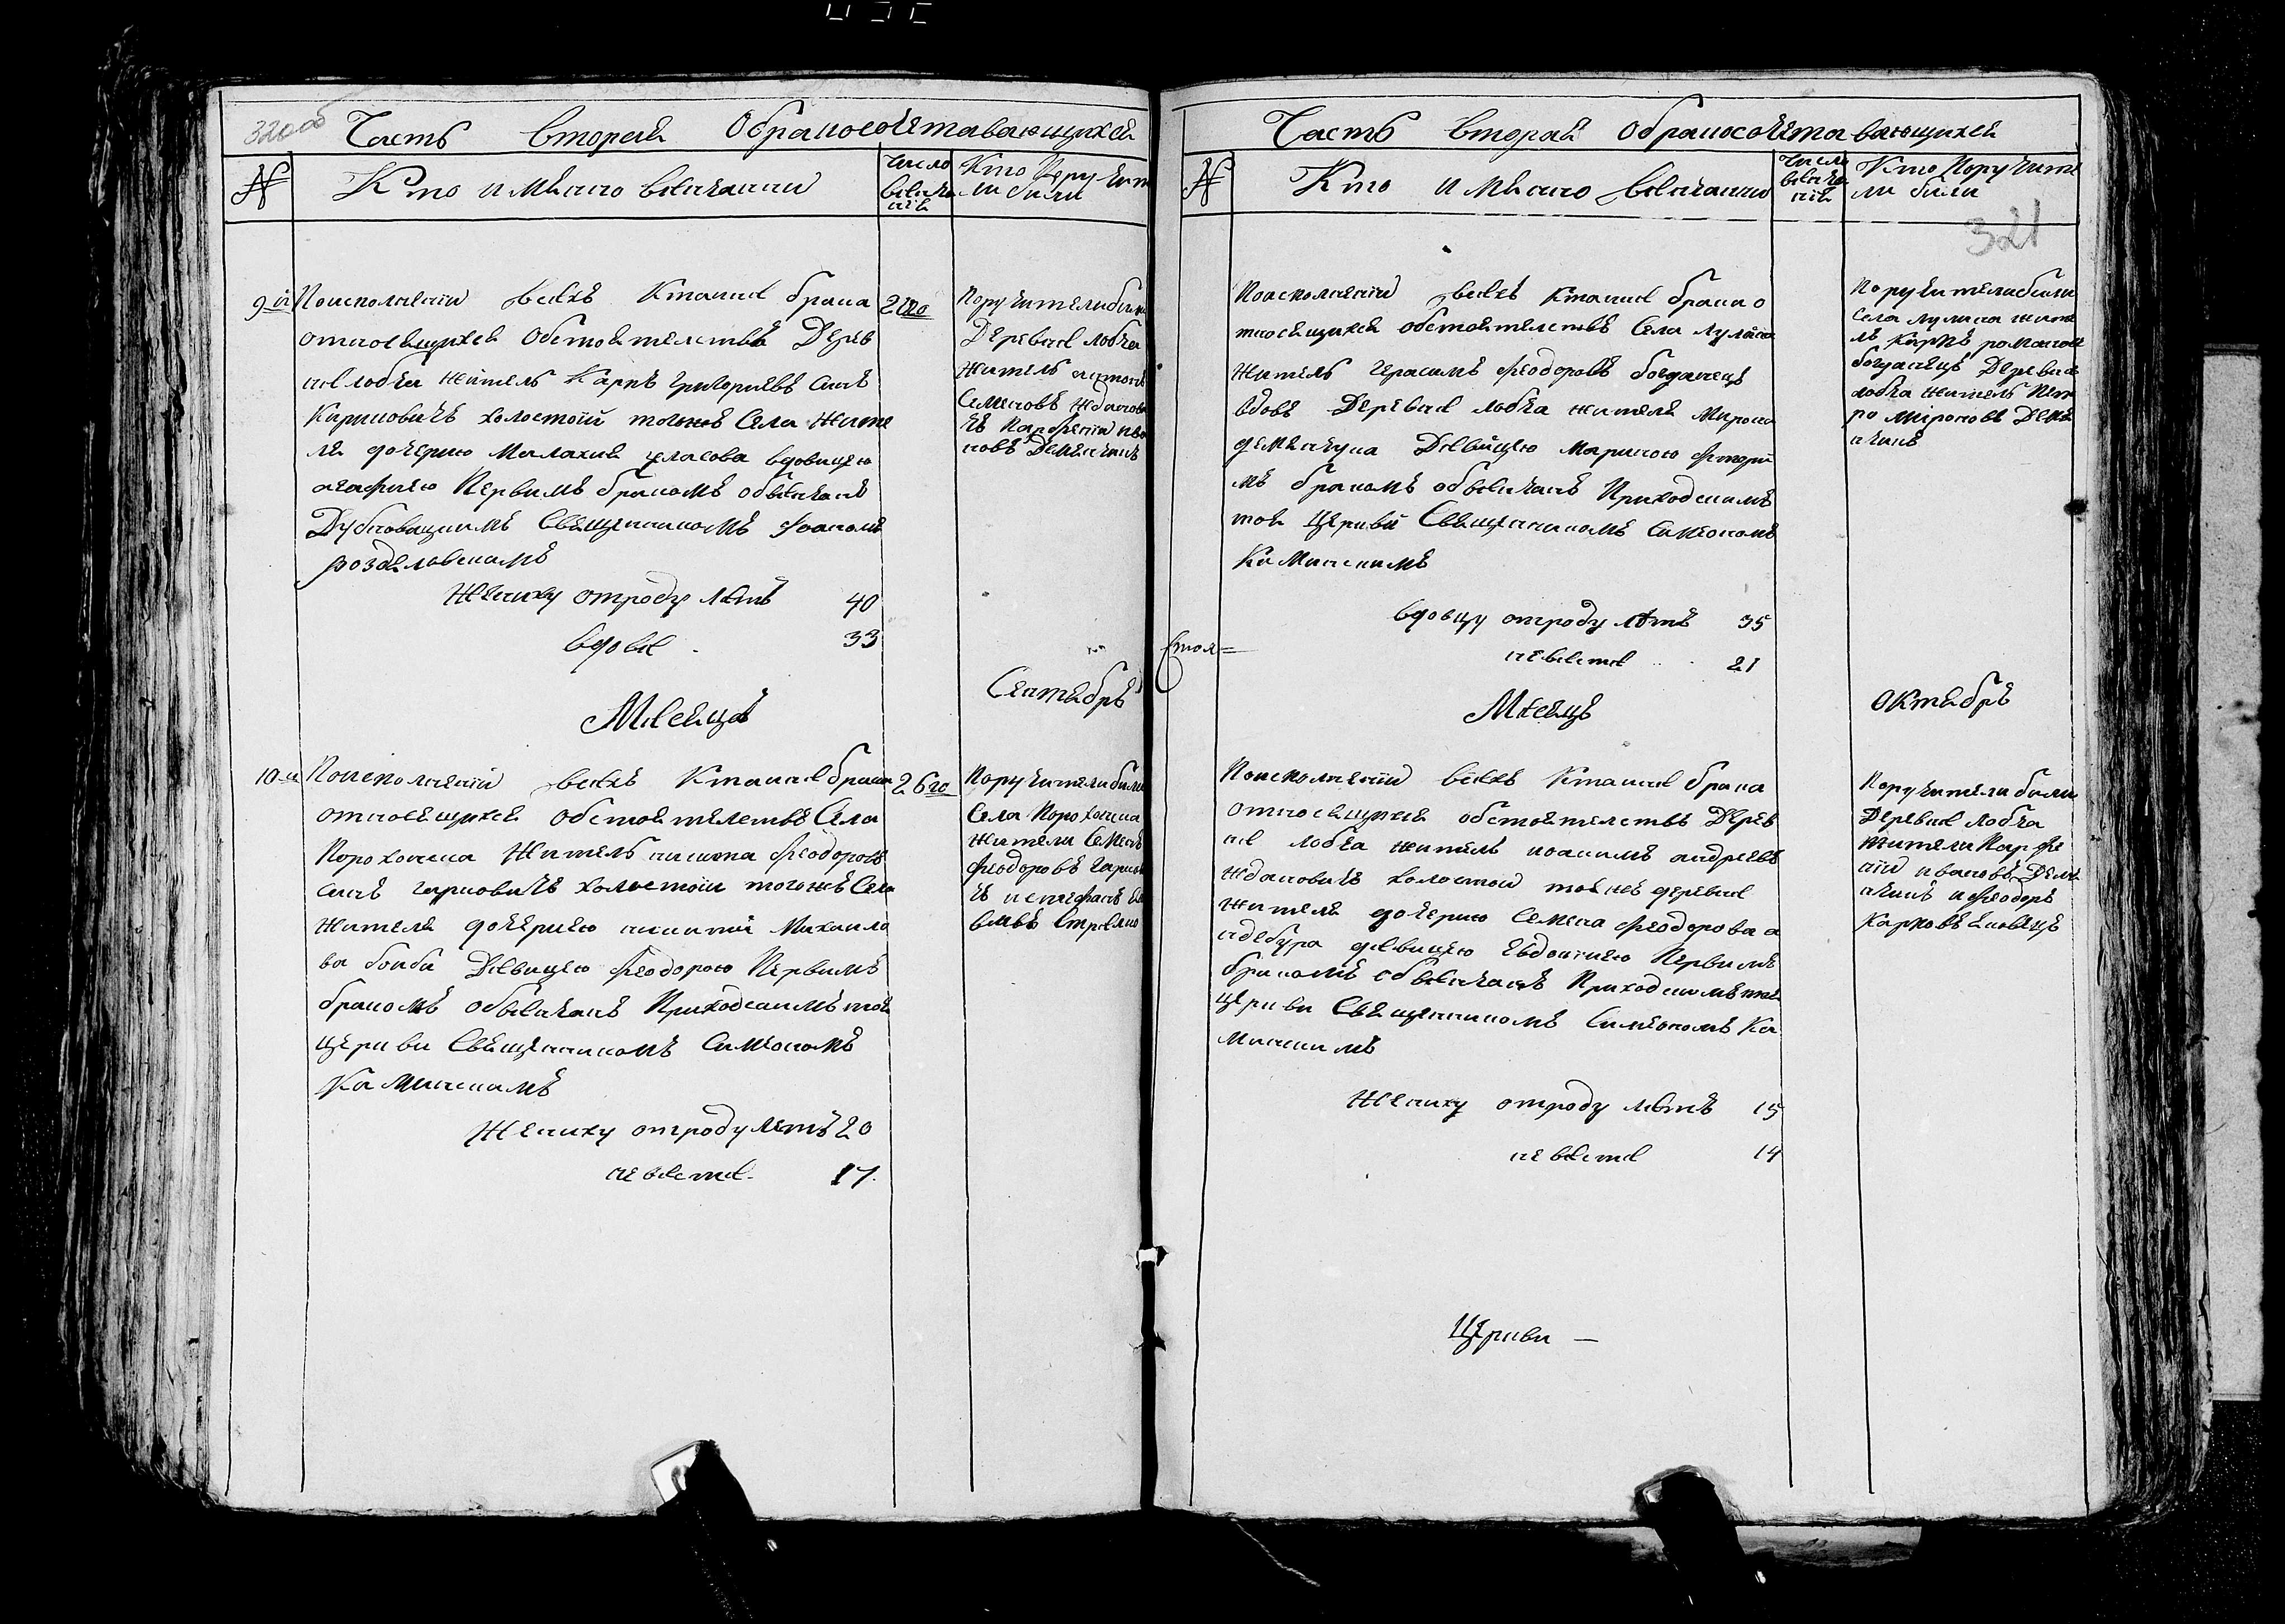 320об
Часть вторая Обракосочетавающихся
№
Кто имянно венчанны
Число
венча
ния
Кто Поручите
ли были
9й
По исполнении всехъ к таине брака
относящихся обстоятелствъ Дерев
не лобча житель Карпъ Григориевъ сынъ
Карповичъ холостой тогожъ Села жите
ля дочерию Малахия уласова вдовицею
агафиею Первимъ бракомъ обвенчанъ
Дубновицкимъ Священникомъ Иоанномъ
роздяловскимъ
2го
Поручители были
Деревне лобча
житель антонъ
Семеновъ Жданови
чъ Парфений ива
новъ Демянчикъ
Жениху отроду летъ 40
вдове 33
Месяцъ Сентябръ
10й
По исполнении всехъ к таине брака
относящихся обстоятелствъ Села
Порохонска Житель никита феодоровъ
синъ Гарповичъ холостой тогожъ Села
жителя дочериею никити Михаило
ва боиби Девицею феодорою Первимъ
бракомъ обвенчанъ Приходскимъ тоя
церкви Священникомъ Симеономъ
Каминскимъ
26го
Поручители били
Села Порохонска
жители Семенъ
феодоровъ Гарпови
чъ и стефанъ
Жениху отроду летъ 20
невесте 17
Часть вторая Обракосочетавающихся
№
Кто имянно венчанны
Число
венча
ния
Кто Поручите
ли били
321
По исполнении всехъ к таине брака о
тносящихся обстоятелствъ Села лулина
житель Герасимъ феодоровъ богданецъ
вдовъ Деревне лобча жителя Мирона
демянчука Девицею мариною фтори
мъ бракомъ обвенчанъ Приходскимъ
тоя Церкви Священникомъ Симеономъ
Каминскимъ
Поручители были
Села лулина жите
лъ Карпъ романовъ
богданецъ Деревне
лобча житель Пет
ро Мироновъ Демя
нчикъ
вдовцу отроду летъ 35
невесте 21
Месяцъ Октябръ
По исполнении всехъ к таине брака
относящихся обстоятелствъ Дерев
не лобча житель иоакимъ андреевъ
ждановичъ холостой тояжъ деревне
жителя дочерию Семена феодорова
девицею Евдокиею Первимъ
бракомъ обвенчанъ Приходскимъ тоя
церкви Священникомъ Симеономъ Ка
минскимъ
Поручители били
Деревне лобча
жители Парфе
ний ивановъ Демя
нчикъ и феодоръ
Карповъ
Жениху отроду летъ 15
невесте 14
Церкви —